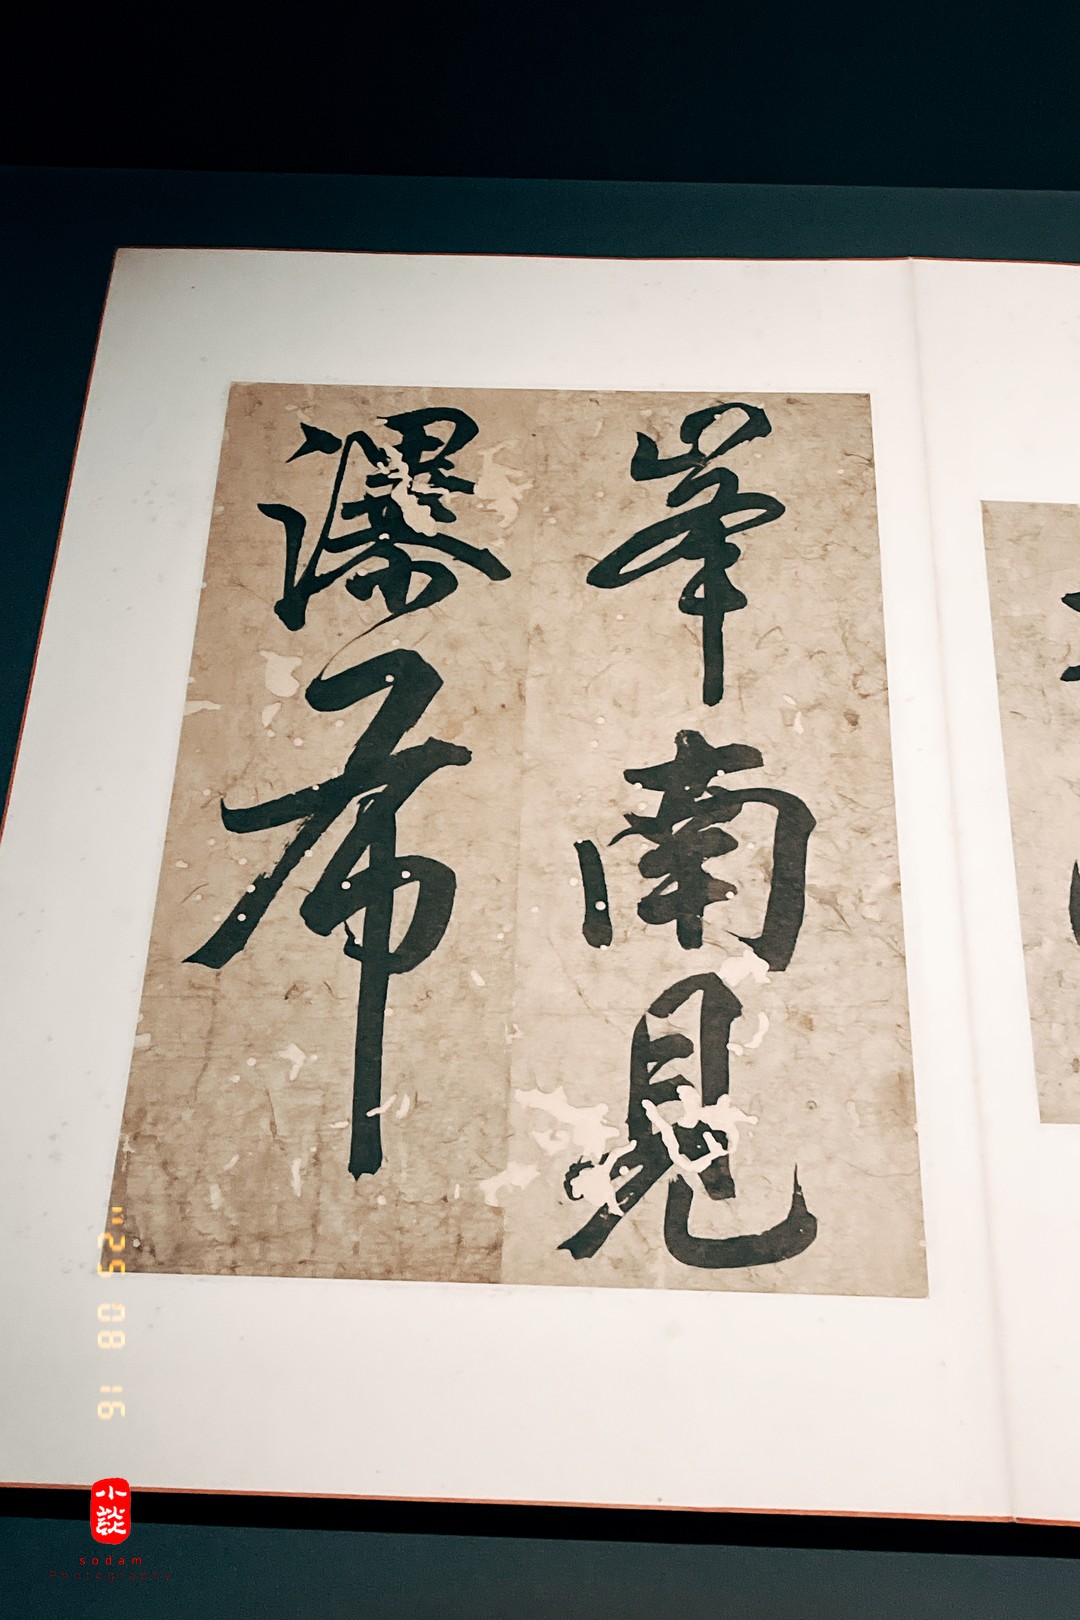 峯南見
瀑布
'25 08 16
小談
sodam
Photography